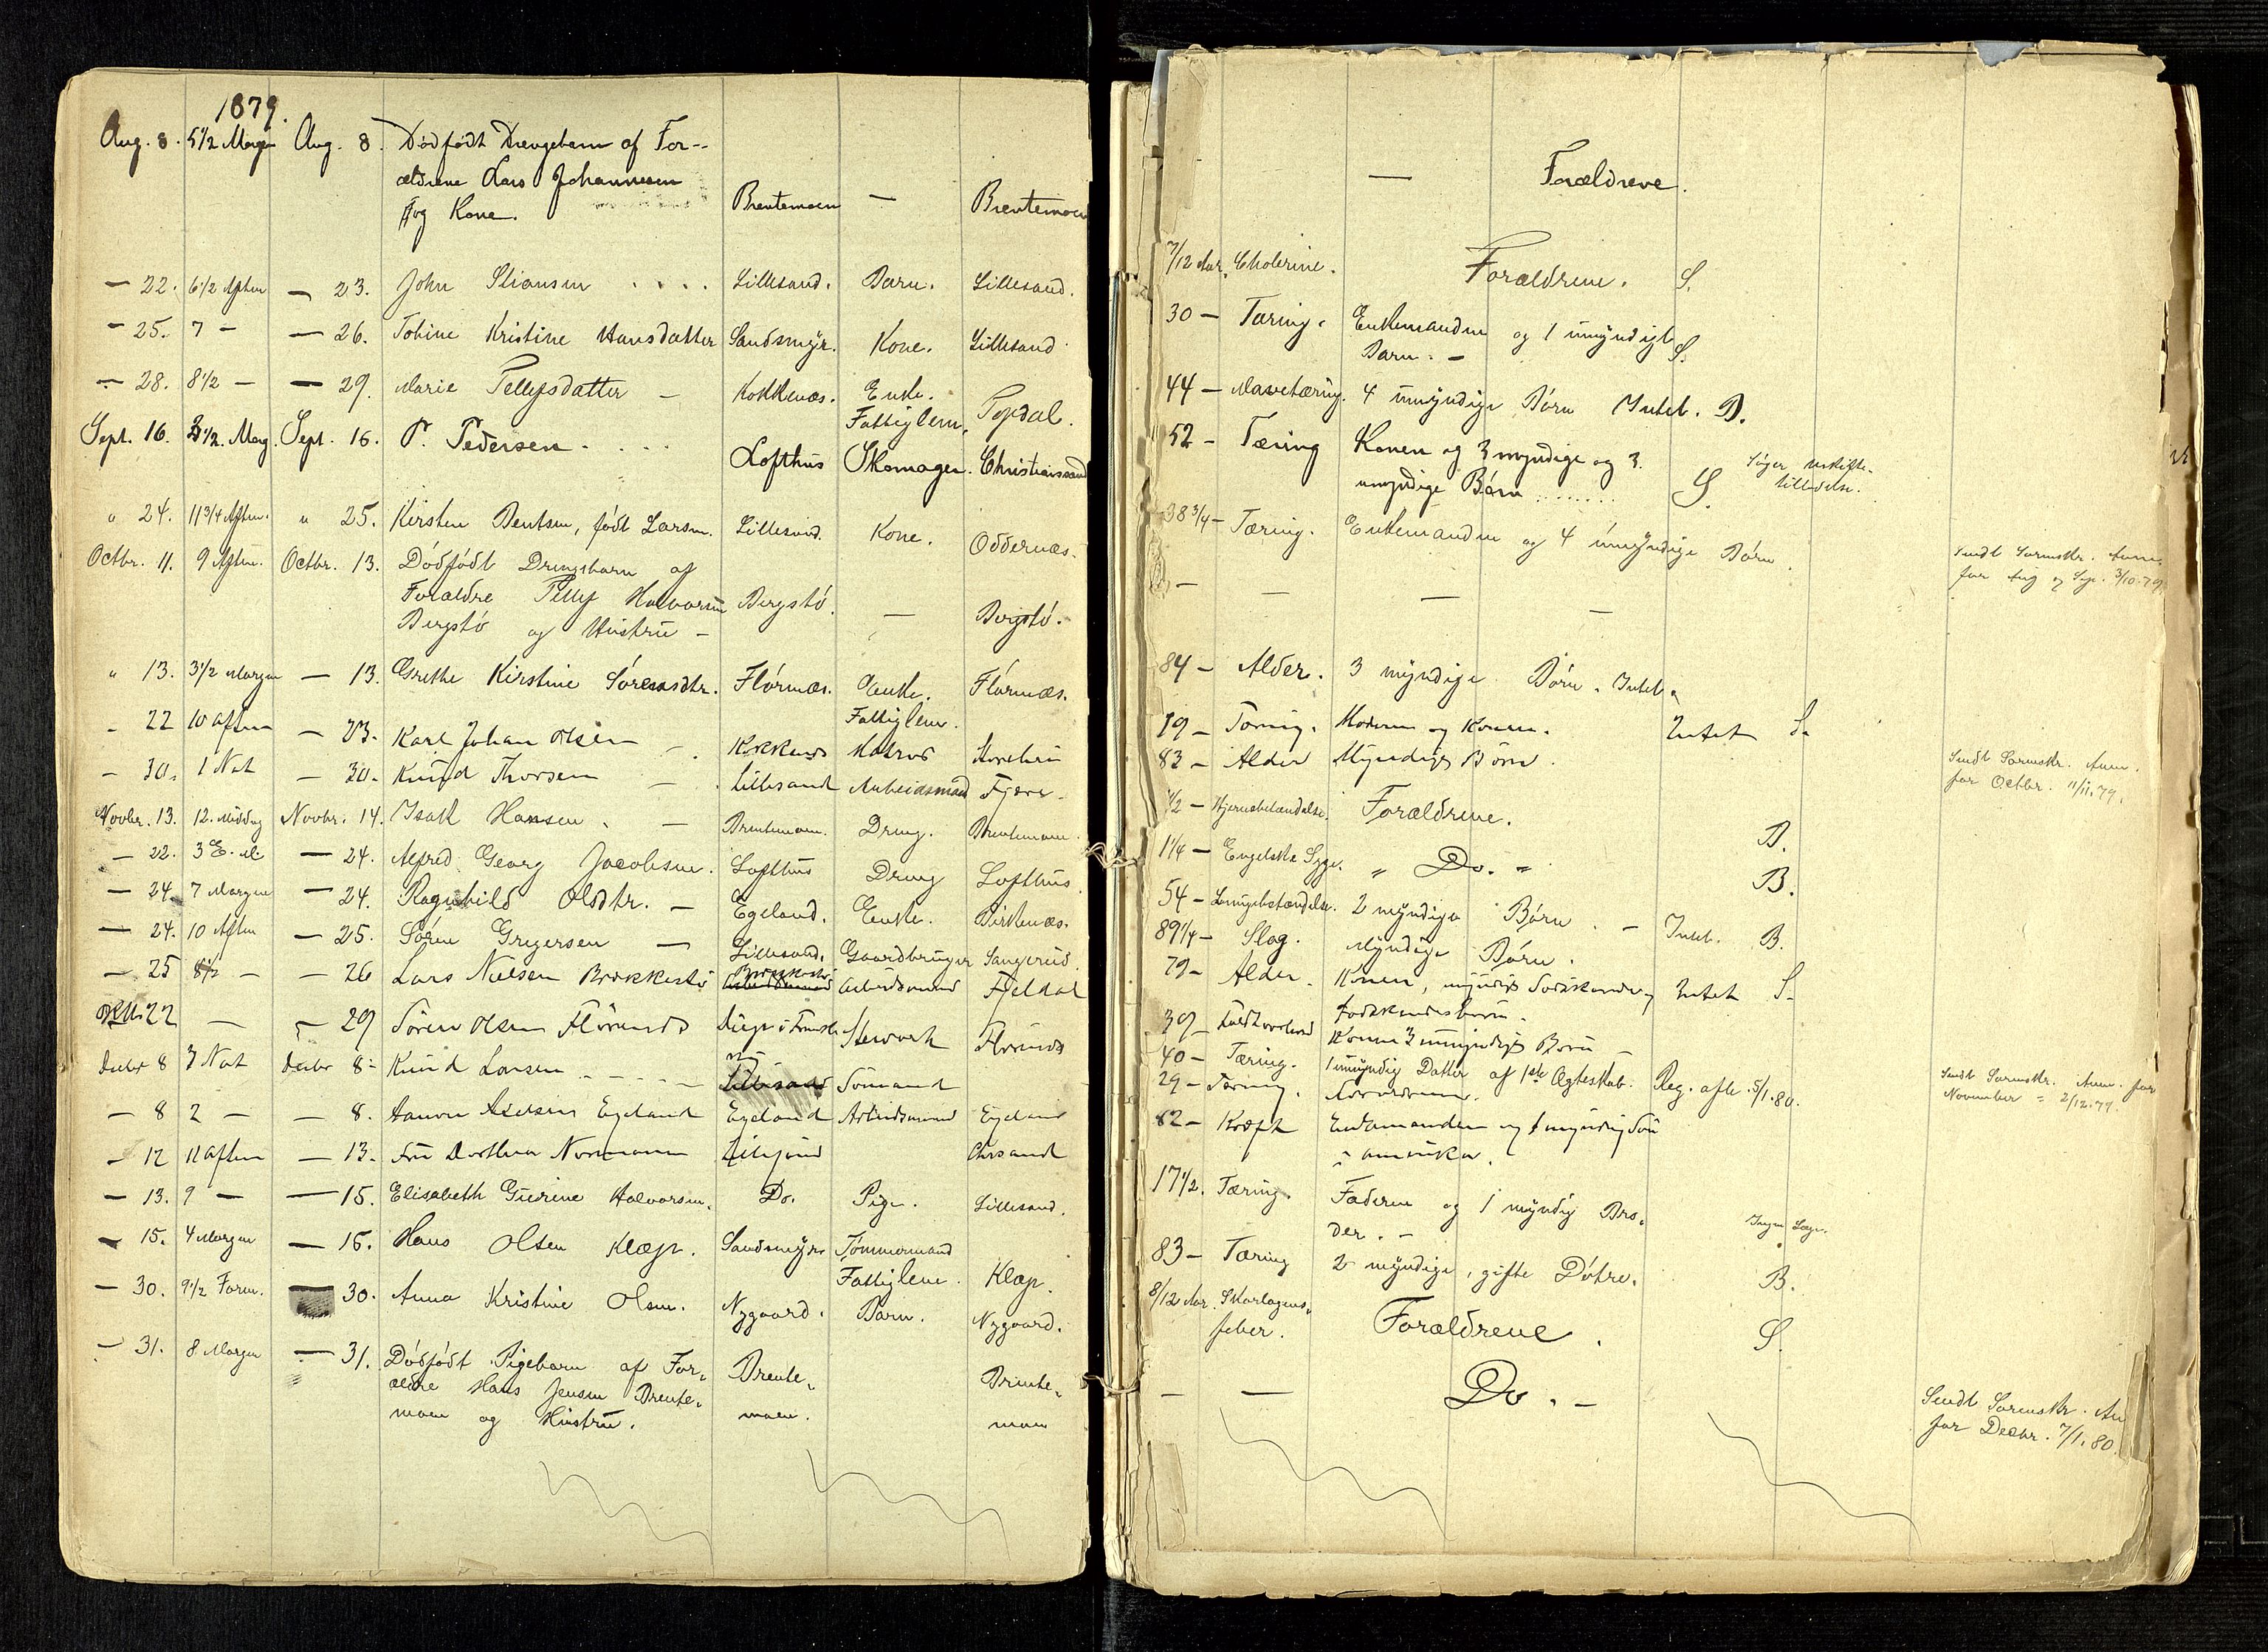 1879.
Aug. 8. 5 1/2 Morgen Aug. 8. Dødfødt Drengebarn af For-
ældrene Lars Johannesen
og Kone. Brentemoen — Brentemoen
— 22. 6 1/2 Aften — 23. John Stiansen . . . . Lillesand. Barn. Lillesand.
— 25. 7 — — 26. Tobine Kristine Hansdatter Sandsmyr. Kone. Lillesand
— 28. 8 1/2 — — 29. Marie Tellefsdatter — Kokkenæs. Enke.
Fattiglem. Topdal.
Sept. 16. 3 1/2 Morg. Sept. 16. P. Pedersen . . . Lofthus Skomager. Christianssand
" 24. 11 3/4 Aften. " 25. Kirsten Bentsen, født Larsen. Lillesand. Kone. Oddernæs.
Octbr. 11. 9 Aften. Octbr. 13. Dødfødt Drengebarn af
Forældre Tellef Halvorsen Bergstø. — Bergstø.
Bergstø og Hustru —
" 13. 3 1/2 Morgen — 13. Grethe Kirstine Sørensdtr. Flørnæs. Enke. Flørnæs.
Fattiglem.
- 22 10 aften — 23. Karl Johan Olsen — Kokkenæs Matros
— 30. 1 Nat — 30. Knud Thorsen — Lillesand Arbeidsmand Fjære
Novbr. 13. 12. Middag Novbr. 14. Isak Hansen . — Brentemoen. Dreng. Brentemoen.
— 22. 3 E. M. — 24. Alfred Georg Jacobsen. Lofthus Dreng Lofthus.
— 24. 7 Morgen — 24. Ragnhild Olsdtr. — Egeland. Enke. Birkenæs.
— 24. 10 Aften — 25. Søren Gregersen — Lillesand. Gaardbruger
— 25 8 1/2 — — 26 Lars Nielsen Brækkestø Brækkestø Arbeidsmand Fjeldal
22 — — 29 Søren Olsen Flørenæs Stewart Flørenæs
Decbr 8 3 Nat Decbr 8 - Knud Larsen - - - - Lillesand Sømand
— 8 2 — — 8. Egeland Egeland Arbeidsmand Egeland
— 12 11 aften — 13. Fru Dorthea Normann Lillesand Chrsand
— 13. 9 — — 15. Elisabeth Gurine Halvorsen. Do. Pige. Lillesand.
— 15. 4 Morgen — 15. Hans Olsen Klæp. Sandsmyr Tømmermand
Fattiglem. Klæp.
— 30. 9 1/2 Form. — 30. Anna Kristine Olsen. Nygaard. Barn. Nygaard.
— 31. 8 Morgen — 31. Dødfødt Pigebarn af For-
ældre Hans Jensen Brente- Brente- Brente-
moen og Hustru. moen. moen
— Forældrene.
7/12 Aar. Cholerine. Forældrene. S.
30 — Tæring. Enkemanden og 1 umyndigt
Barn. — S.
44 — Mavetæring. 4 umyndige Børn Intet. B.
52 — Tæring Konen og 3 myndige og 3
umyndige Børn ........ S. Søger uskifte-
tilladelse.
38 3/4 — Tæring. Enkemanden og 4 umyndige Børn.
— — — — Sendt Sorenskr. Anm.
for Aug og Sep. 3/10-79.
84 — Alder. 3 myndige Børn. Intet.
29 — Tæring. Moderen og Konen. Intet S.
83 — Alder Myndige Børn. Sendt Sorenskr. Anm.
for Octbr. 11/11.79.
1/2 — Hjernebetændelse. Forældrene. B.
1 1/4 — Engelsk Syge. " Do. " B.
54 — Lungebetændelse. 2 myndige Børn. — Intet. B.
89 1/4 — Slag. Myndige Børn.
79 — Alder. Konen, myndige Sødskende og Intet S.
Sødskendebørn.
39 — Konen 3 umyndige Børn —
40 — Tæring. 1 umyndig Datter af 1ste Ægteskab. Reg. afh. 5/1.80. Sendt Sorenskr. Anm. for
November = 2/12.79.
29 — Tæring.
62 — Kræft Enkemanden og 1 myndig Søn
i amerika.
17 1/2. Tæring. Faderen og 1 myndig Bro-
der. — Ingen Læge.
83 — Tæring 2 myndige, gifte Døtre. B.
8/12 Aar. Skarlagens-
feber. Forældrene. S.
— — Do. — Sendt Sorenskr. An
for Decbr. 7/1.80.